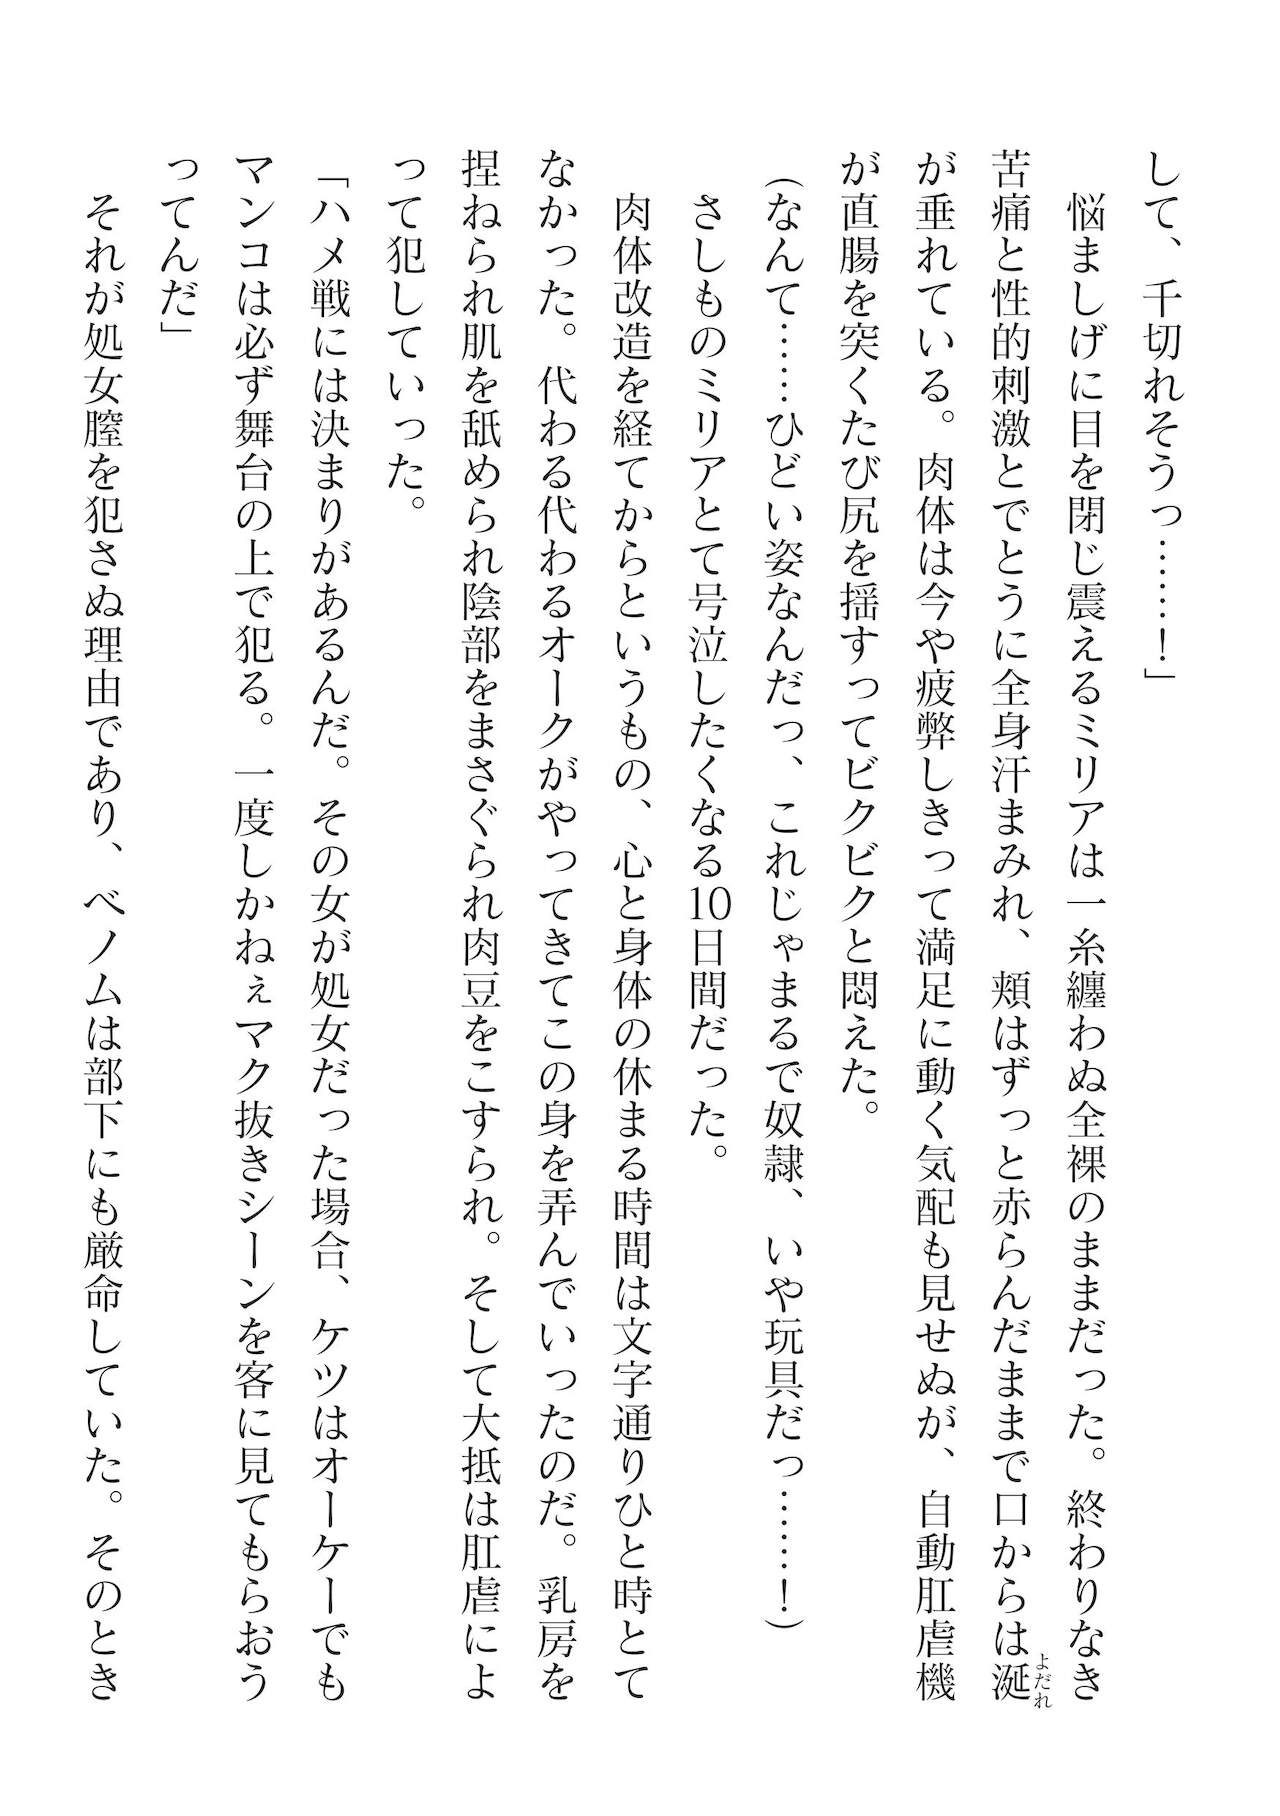 して、千切れそうっ……！」
悩ましげに目を閉じ震えるミリアは一糸纏わぬ全裸のままだった。終わりなき
苦痛と性的刺激とでとうに全身汗まみれ、頬はずっと赤らんだままで口からは涎
よだれ
が垂れている。肉体は今や疲弊しきって満足に動く気配も見せぬが、自動肛虐機
が直腸を突くたび尻を揺すってビクビクと悶えた。
（なんて……ひどい姿なんだっ、これじゃまるで奴隷、いや玩具だっ……！）
さしものミリアとて号泣したくなる10日間だった。
肉体改造を経てからというもの、心と身体の休まる時間は文字通りひと時とて
なかった。代わる代わるオークがやってきてこの身を弄んでいったのだ。乳房を
捏ねられ肌を舐められ陰部をまさぐられ肉豆をこすられ。そして大抵は肛虐によ
って犯していった。
「ハメ戦には決まりがあるんだ。その女が処女だった場合、ケツはオーケーでも
マンコは必ず舞台の上で犯る。一度しかねぇマク抜きシーンを客に見てもらおう
ってんだ」
それが処女膣を犯さぬ理由であり、ベノムは部下にも厳命していた。そのとき